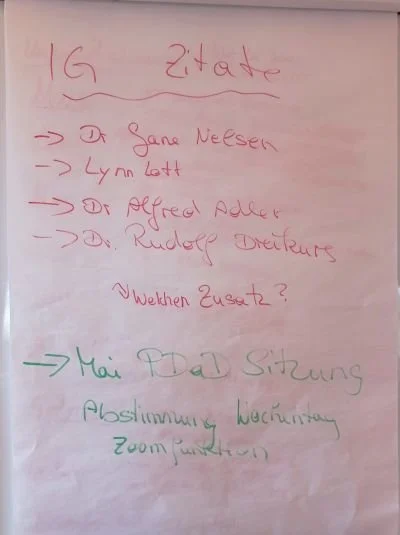 IG Zitate
→ Dr Jane Nelsen
→ Lynn Lott
→ Dr Alfred Adler
→ Dr. Rudolf Dreikurs
Welchen Zusatz?
→ Mai PDaD Sitzung
Abstimmung Wochentag
Zoomfunktion